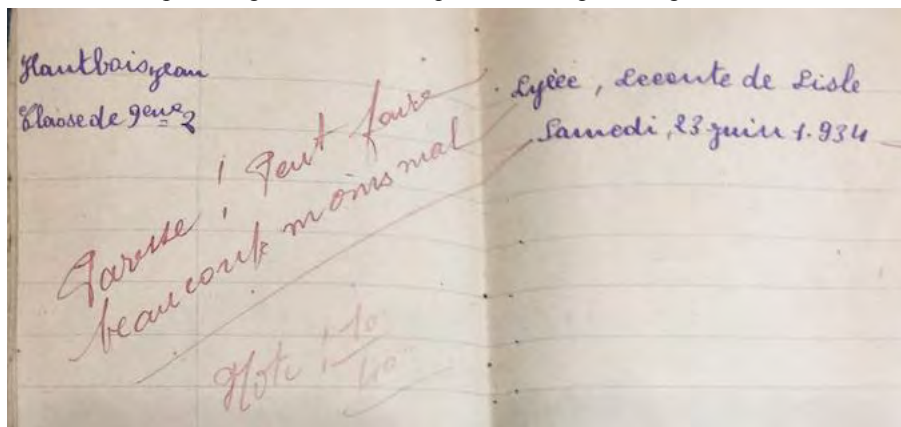 Hautbois Jean
Classe de 9eme 2
Lycée, Leconte de Lisle
Samedi, 23 juin 1.934
Paresse ! Peut faire
beaucoup moins mal
Note : 10
40